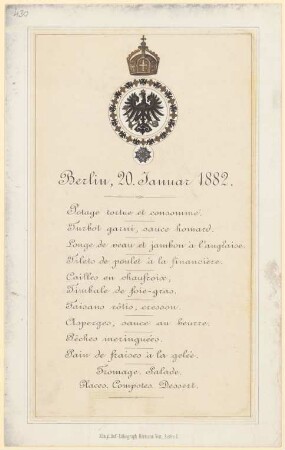 430
Berlin, 20. Januar 1882.
Potage tortue et consommé.
Turbot garni, sauce homard.
Longe de veau et jambon à l'anglaise.
Filets de poulet à la financière.
Cailles en chaufroix,
Timbale de foie-gras.
Faisans rôtis, cresson.
Asperges, sauce au beurre.
Pêches meringuées.
Pain de fraises à la gelée.
Fromage. Salade.
Glaces. Compotes. Dessert.